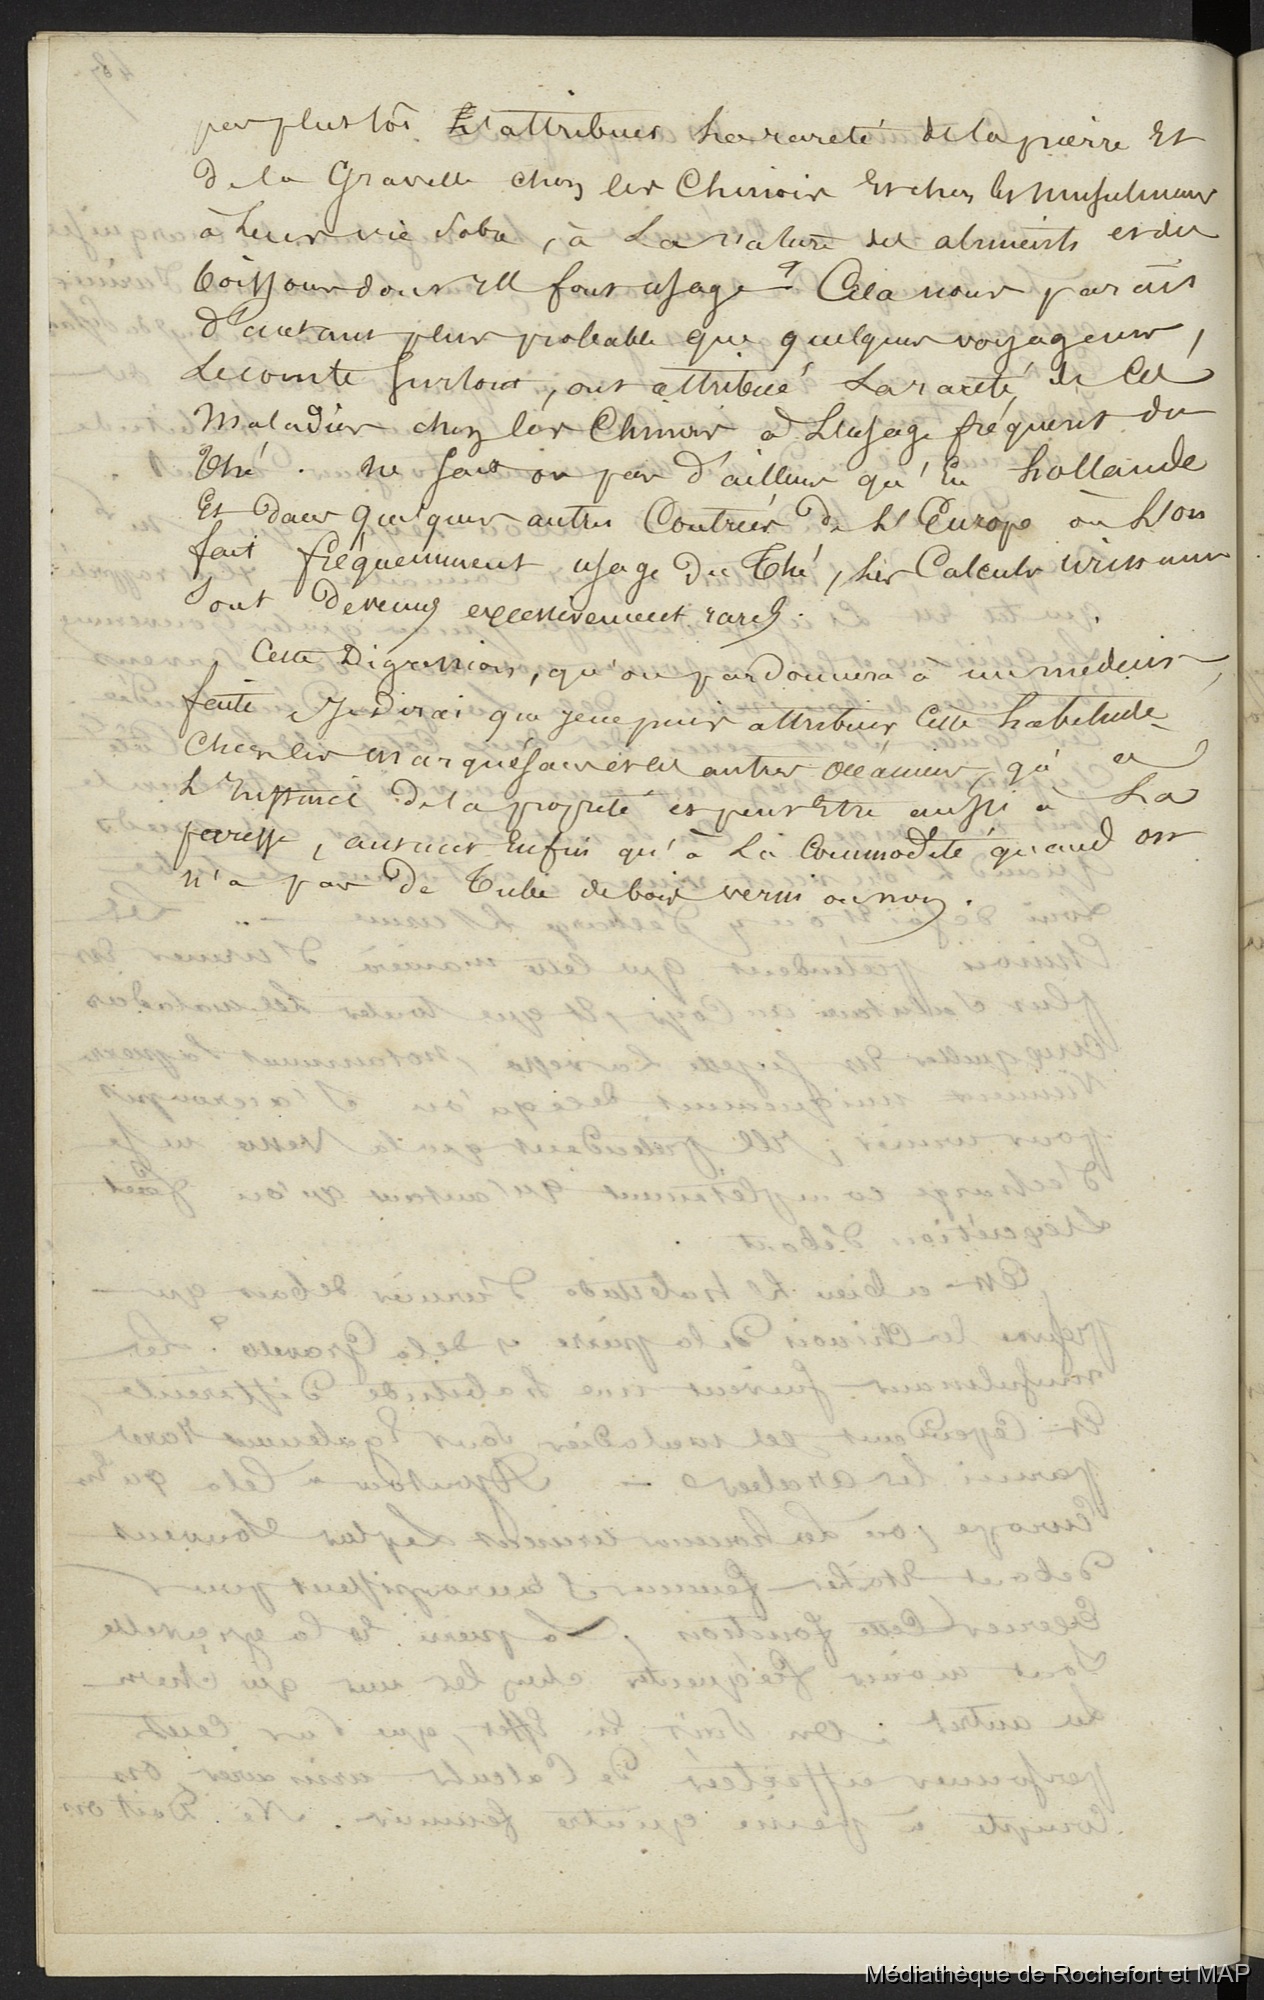 pas plustôt attribuer la rareté de la pierre Et
de la Gravelle chez les Chinois Et chez les musulmans
à Leur vie sobre, à La nature des aliments et des
boissons dont Ils font usage ? Cela nous parait
d'autant plus probable que quelques voyageurs,
Lecomte surtout, ont attribué La rareté de Ces
Maladies chez les Chinois à L'usage fréquent du
Thé. ne sait on pas d'ailleurs qu'En hollande
Et dans quelques autres Contrées de L'Europe où L'on
fait fréquemment usage du Thé, les Calculs urinaires
sont devenus excessivement rares.
Cette Digression, qu'on pardonnera à un médecin,
faite, Je dirai que Je ne puis attribuer Cette habitude
Chez les marquésans et les autres océaniens, qu'à
L'Instinct de la propreté et peut Etre aussi à La
paresse, autant Enfin qu'à La Commodité quand on
n'a pas De Tube de bois verni ou non.
Médiathèque de Rochefort et MAP